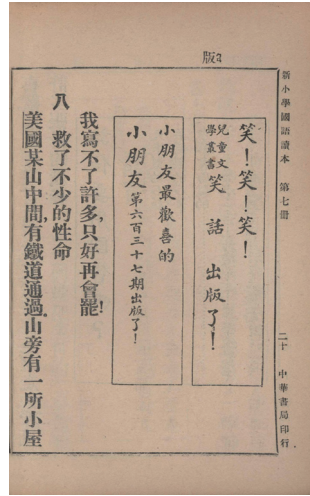 新小學國語讀本 第七冊
二十 中華書局印行
版a
笑!笑!笑!
兒童文學叢書 笑話 出版了!
小朋友最歡喜的
小朋友第六百三十七期出版了!
我寫不了許多,只好再會罷!
八 救了不少的性命
美國某山中間,有鐵道通過,山旁有一所小屋